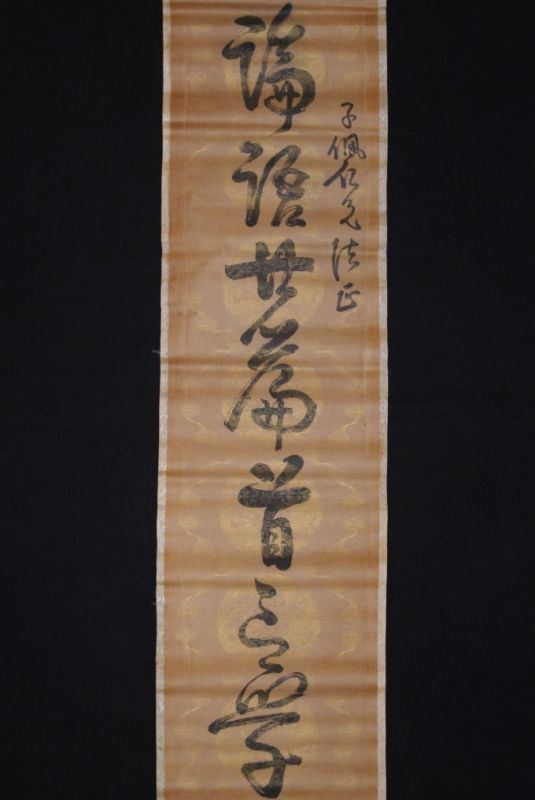 子佩仁兄法正
論語廿篇首言學